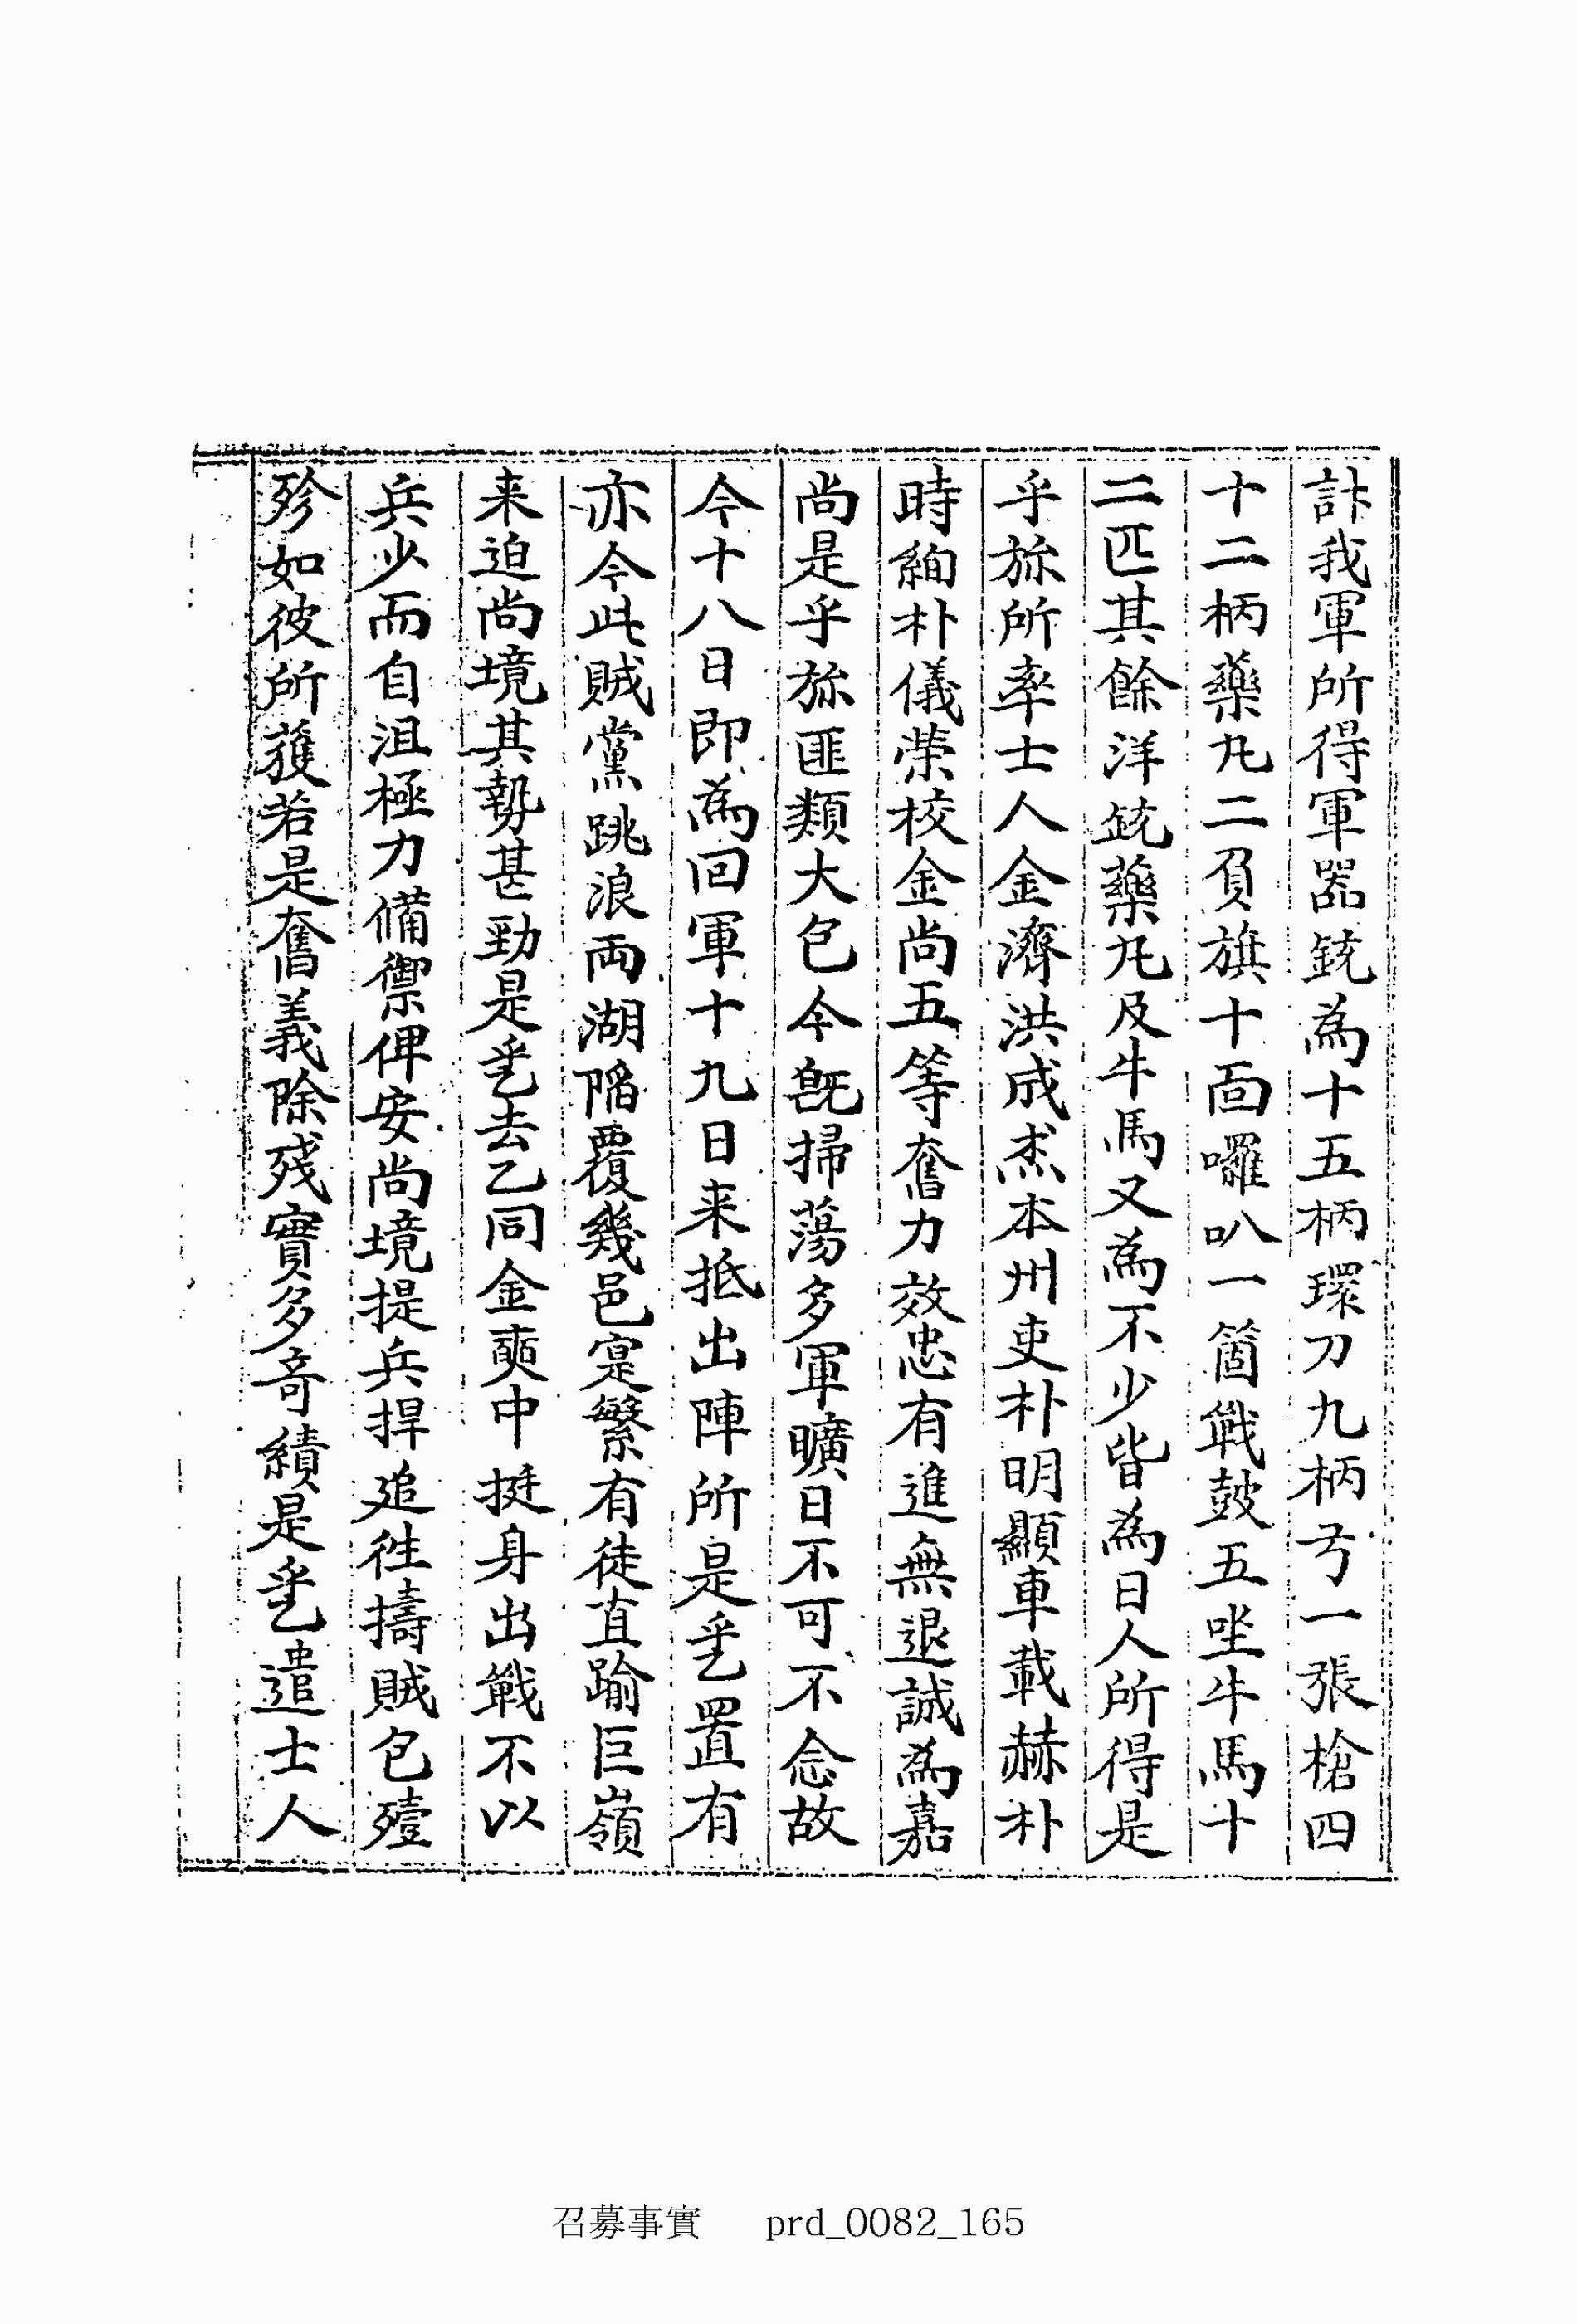 計我軍所得軍器銃為十五柄環刀九柄弓一張槍四
十二柄藥丸二負旗十面囉叭一箇戰鼓五坐牛馬十
二匹其餘洋銃藥丸及牛馬又為不少皆為日人所得是
乎旀所率士人金濟洪成杰本州吏朴明顯車載赫朴
時絢朴儀榮校金尚五等奮力效忠有進無退誠為嘉
尚是乎旀匪類大包今旣掃蕩多軍曠日不可不念故
今十八日即為回軍十九日来抵出陣所是乎乙置有
亦今此賊黨跳浪両湖陷覆幾邑寔繁有徒直踰巨嶺
来迫尚境其勢甚勁是乎乙去乙同金奭中挺身出戰不以
兵少而自沮極力備禦俾安尚境提兵捍追徃擣賊包殪
殄如彼所獲若是奮義除殘實多奇績是乎乙遣士人
召募事實 prd_0082_165